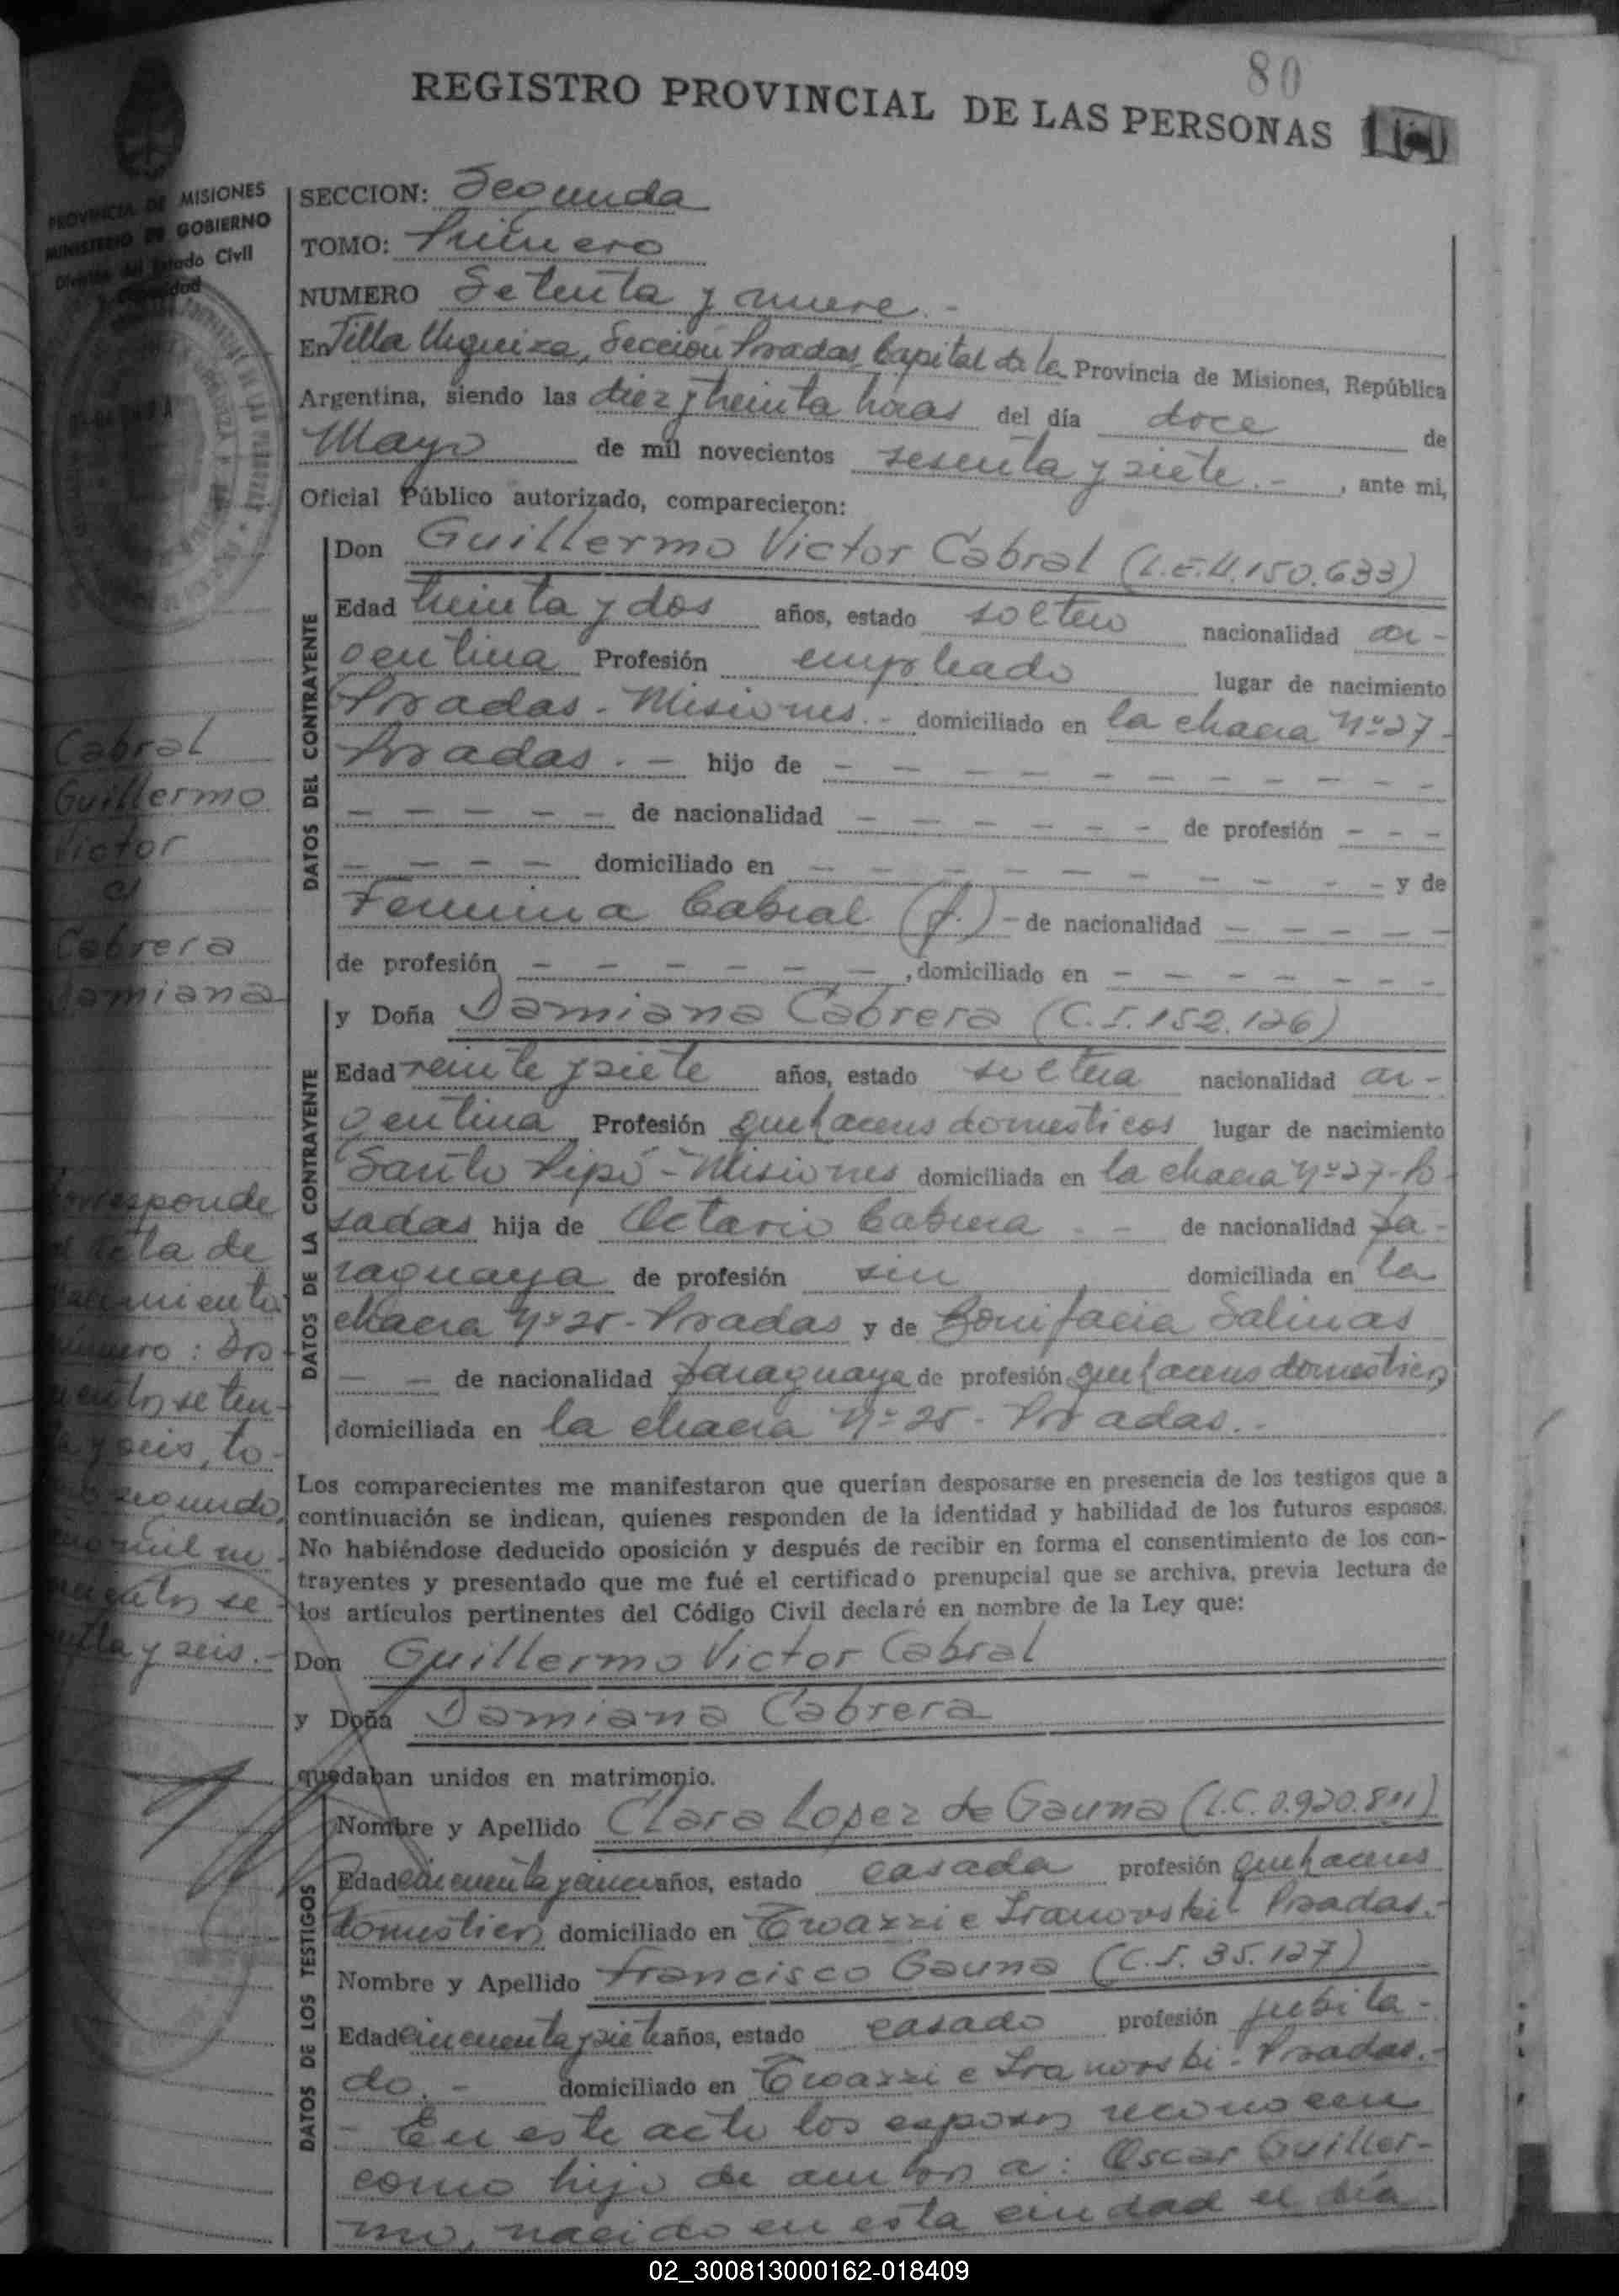 80
REGISTRO PROVINCIAL DE LAS PERSONAS 160
PROVINCIA DE MISIONES
MINISTERIO DE GOBIERNO
División del Estado Civil
SECCION: Segunda
TOMO: Primero
NUMERO Setenta y nueve.-
En Villa Urquiza, Sección Posadas, Capital de la Provincia de Misiones, República
Argentina, siendo las diez y treinta horas del día doce de
Mayo de mil novecientos sesenta y siete.- , ante mi,
Oficial Público autorizado, comparecieron:
DATOS DEL CONTRAYENTE
Don Guillermo Victor Cabral (L.E. 4.150.633)
Edad treinta y dos años, estado soltero nacionalidad ar-
gentina Profesión empleado lugar de nacimiento
Posadas - Misiones.- domiciliado en la chacra Nº 27-
Posadas.- hijo de - - - - - - - - - - -
- - - - - de nacionalidad - - - - - - de profesión - - -
- - - - domiciliado en - - - - - - - - - - y de
Fermina Cabral (f.)- de nacionalidad - - - - -
de profesión - - - - - - , domiciliado en - - - - - - -
Cabral
Guillermo
Victor
c/
Cabrera
Damiana
DATOS DE LA CONTRAYENTE
y Doña Damiana Cabrera (C.I. 152.126)
Edad veinte y siete años, estado soltera nacionalidad ar-
gentina Profesión quehaceres domesticos lugar de nacimiento
Santo Pipó - Misiones domiciliada en la chacra Nº 27- Po-
sadas hija de Octavio Cabrera.- de nacionalidad pa-
raguaya de profesión sin domiciliada en la
chacra Nº 25 - Posadas y de Bonifacia Salinas
- - de nacionalidad paraguaya de profesión quehaceres domesticos
domiciliada en la chacra Nº 25 - Posadas.-
Corresponde
al Acta de
Nacimiento
número: Dos
cientos seten-
ta y seis, to-
mo segundo,
año mil no-
vecientos se-
senta y seis.-
Los comparecientes me manifestaron que querían desposarse en presencia de los testigos que a
continuación se indican, quienes responden de la identidad y habilidad de los futuros esposos.
No habiéndose deducido oposición y después de recibir en forma el consentimiento de los con-
trayentes y presentado que me fué el certificado prenupcial que se archiva, previa lectura de
los artículos pertinentes del Código Civil declaré en nombre de la Ley que:
Don Guillermo Victor Cabral
y Doña Damiana Cabrera
quedaban unidos en matrimonio.
DATOS DE LOS TESTIGOS
Nombre y Apellido Clara Lopez de Gauna (L.C. 0.920.811)
Edad cincuenta y cinco años, estado casada profesión quehaceres
domesticos domiciliado en Posadas.-
Nombre y Apellido Francisco Gauna (C.I. 35.127)
Edad cincuenta y siete años, estado casado profesión jubila-
do.- domiciliado en Posadas.-
- En este acto los esposos reconocen
como hijo de ambos a: Oscar Guiller-
mo, nacido en esta ciudad el día
02_300813000162-018409